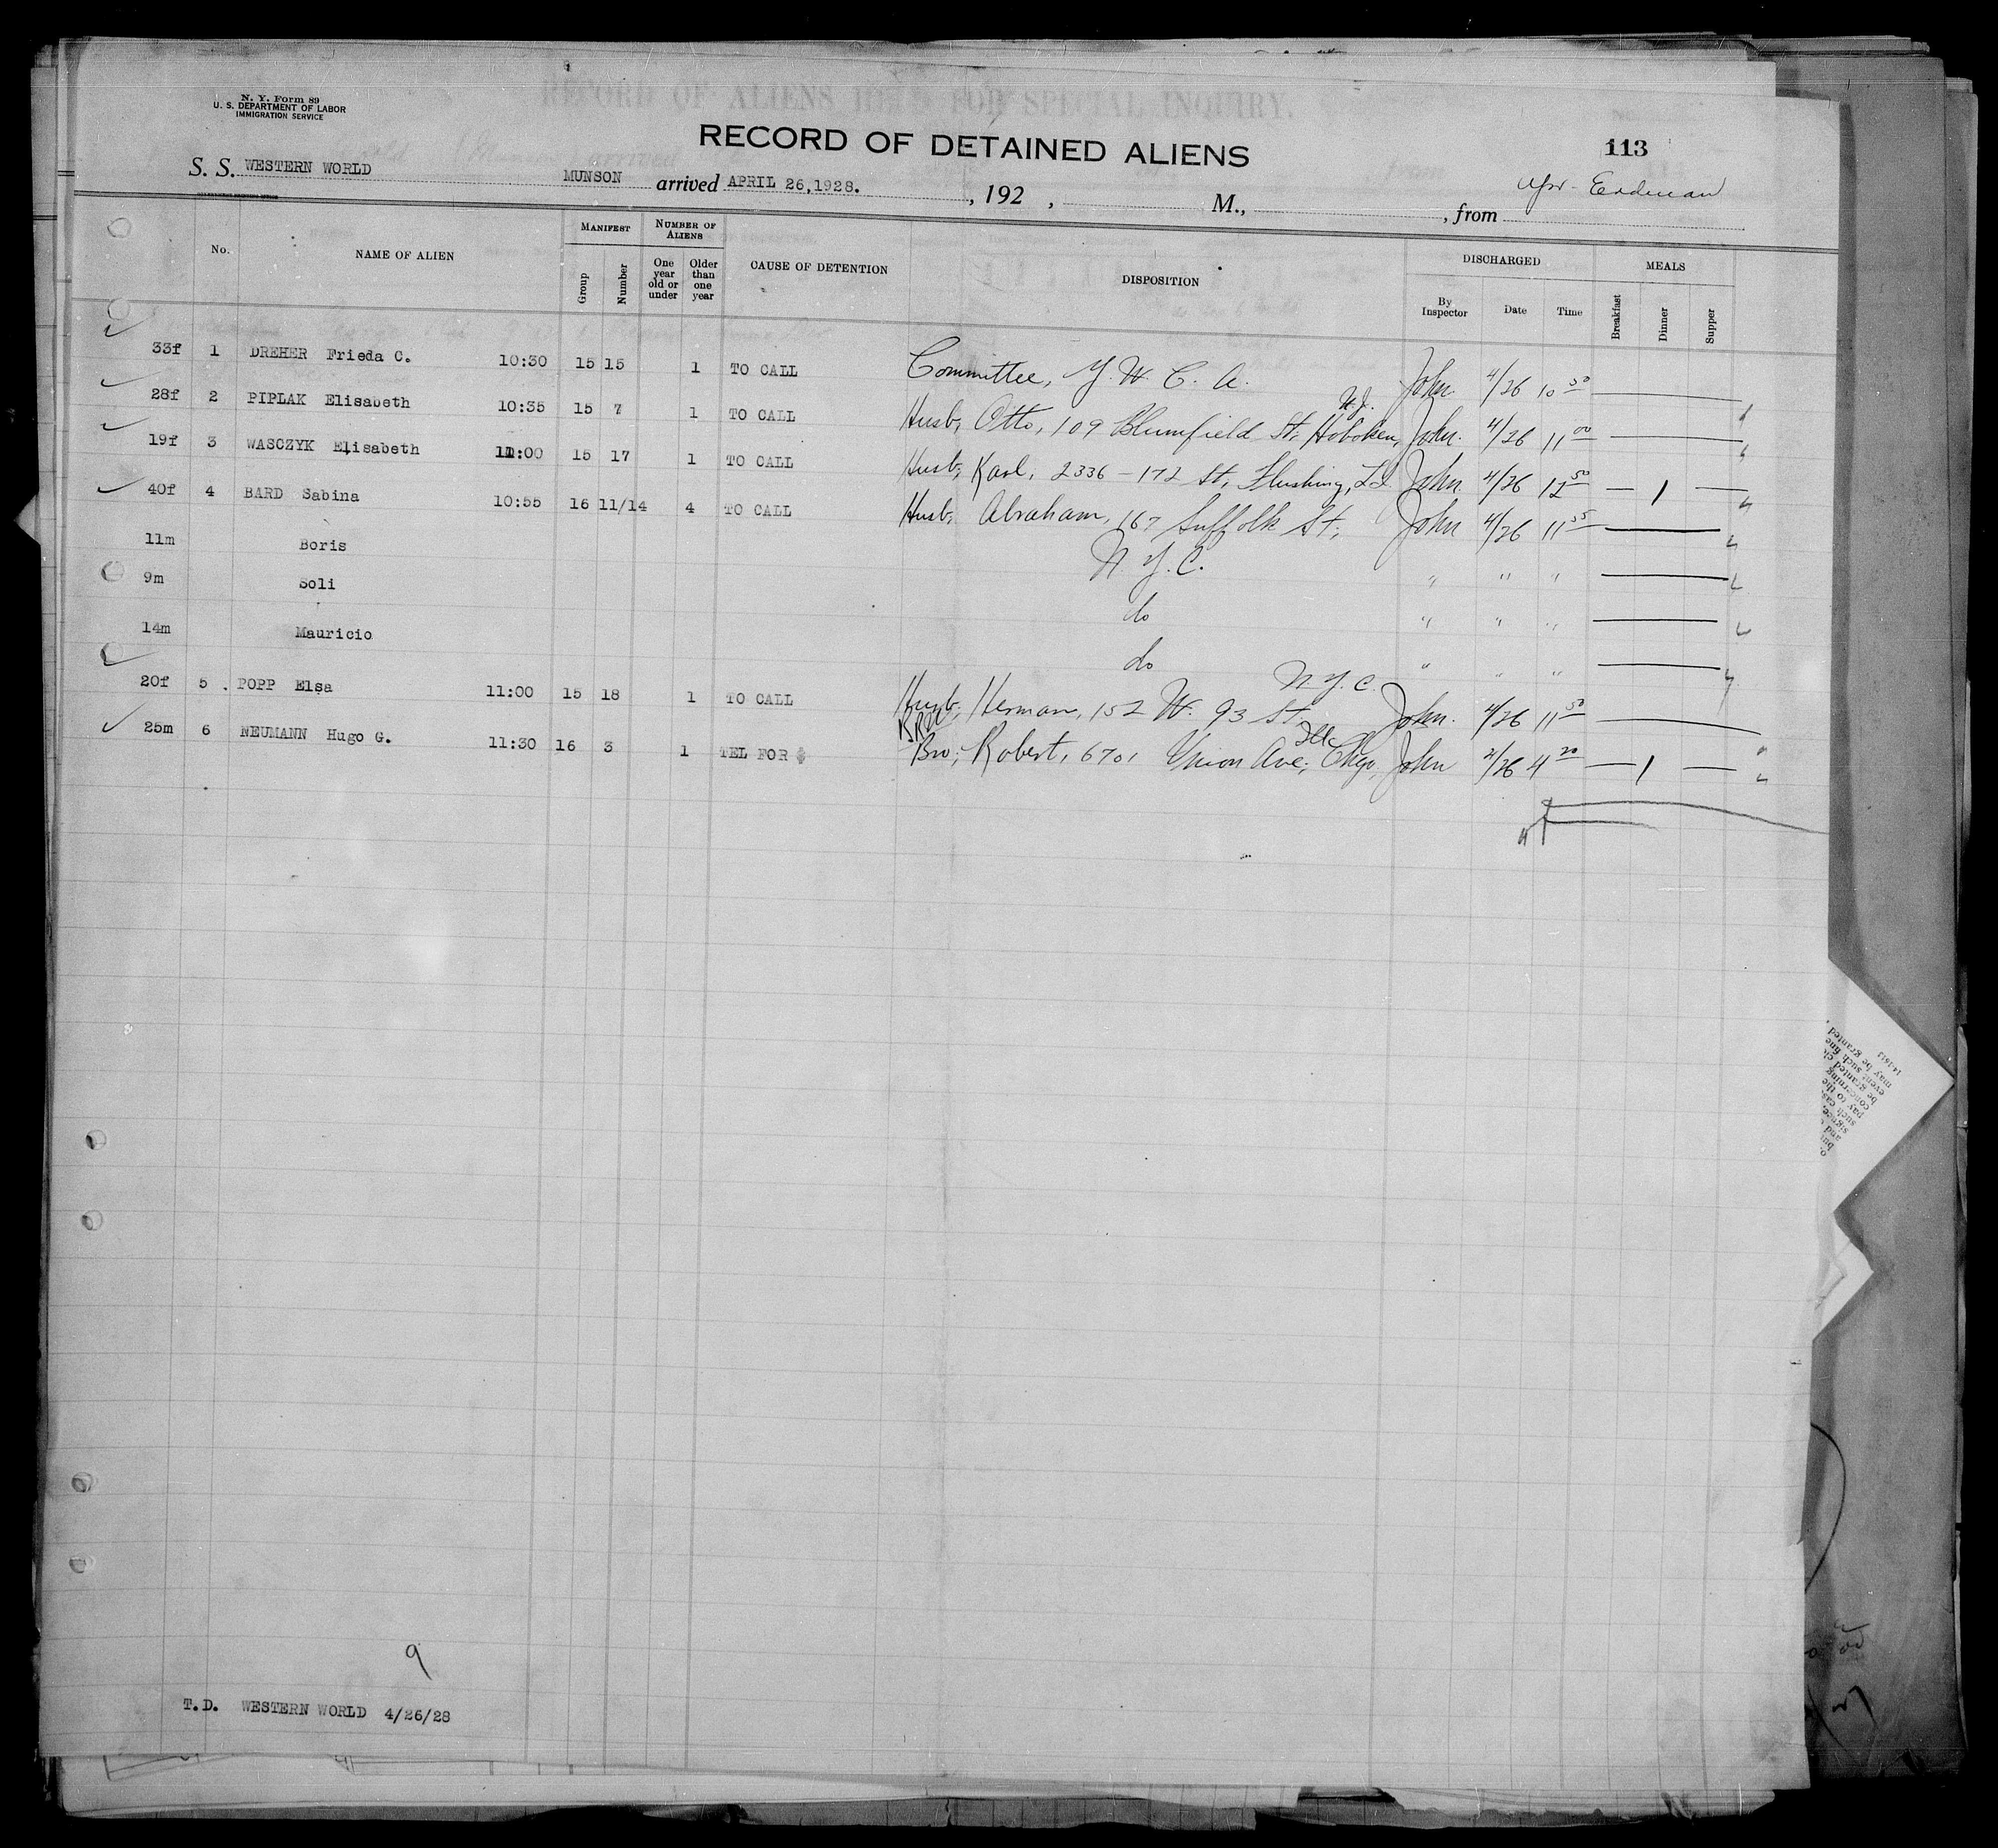 N. Y. Form 89
U. S. DEPARTMENT OF LABOR
IMMIGRATION SERVICE
RECORD OF ALIENS HELD FOR SPECIAL INQUIRY.
RECORD OF DETAINED ALIENS
113
S. S. WESTERN WORLD MUNSON arrived APRIL 26,1928. , 192 , M., , from Erdman
No. NAME OF ALIEN MANIFEST NUMBER OF ALIENS CAUSE OF DETENTION DISPOSITION DISCHARGED MEALS
Group Number One year old or under Older than one year By Inspector Date Time Breakfast Dinner Supper
33f 1 DREHER Frieda C. 10:30 15 15 1 TO CALL Committee, Y. W. C. A. John. 4/26 10 50
28f 2 PIPLAK Elisabeth 10:35 15 7 1 TO CALL Husb, Otto, 109 Blumfield St, Hoboken, N.J. John. 4/26 11 00
19f 3 WASCZYK Elisabeth 11:00 15 17 1 TO CALL Husb, Karl, 2336 - 172 St, Flushing, L I John. 4/26 12 50 1
40f 4 BARD Sabina 10:55 16 11/14 4 TO CALL Husb, Abraham, 167 Suffolk St, John 4/26 11 55
11m Boris N. Y. C. " " "
9m Soli do " " "
14m Mauricio do " " "
20f 5 POPP Elsa 11:00 15 18 1 TO CALL Husb, Herman, 152 W. 93 St. N. Y. C. John. 4/26 11 50
25m 6 NEUMANN Hugo G. 11:30 16 3 1 TEL FOR $ Bro, Robert, 6701 Union Ave, Chgo, Ill John 4/26 4 20 1
9
T.D. WESTERN WORLD 4/26/28